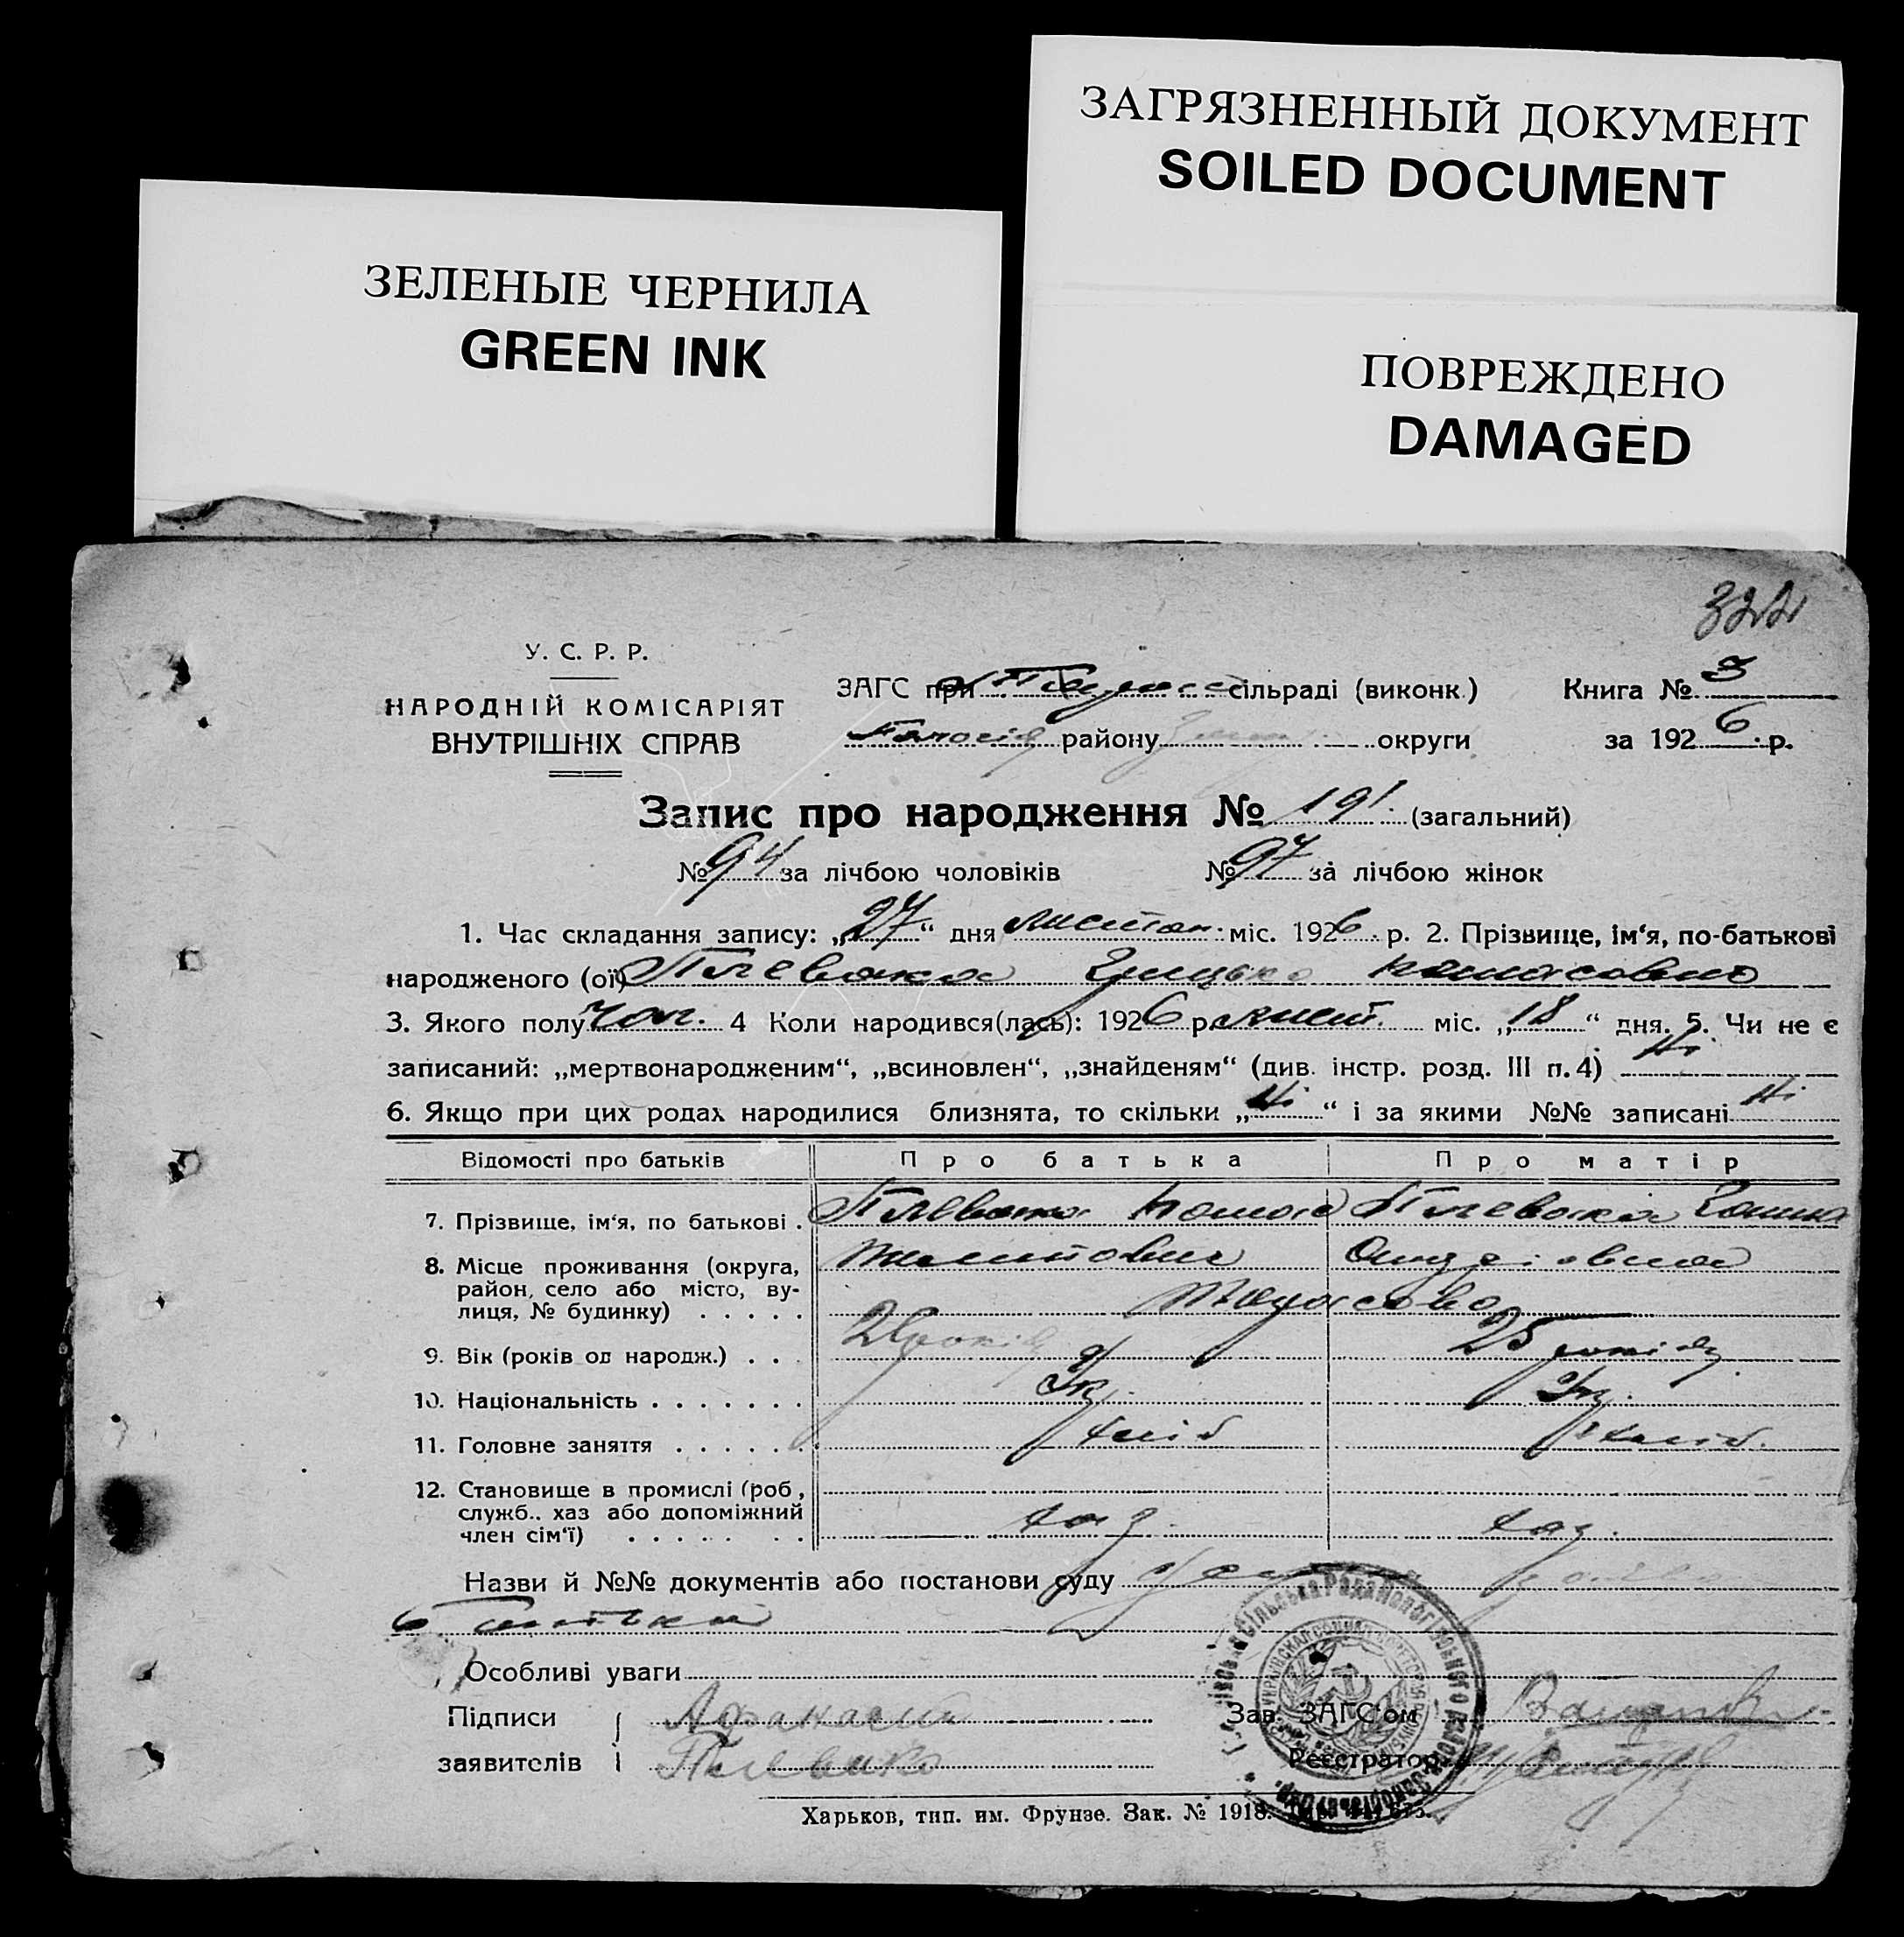 ЗАГРЯЗНЕННЫЙ ДОКУМЕНТ
SOILED DOCUMENT
ЗЕЛЕНЫЕ ЧЕРНИЛА
GREEN INK
ПОВРЕЖДЕНО
DAMAGED
322
У. С. Р. Р.
НАРОДНІЙ КОМІСАРІЯТ
ВНУТРІШНІХ СПРАВ
ЗАГС при сільраді (виконк.) Книга № 3
району округи за 1926 р.
Запис про народження № 191 (загальний)
№ 94 за лічбою чоловіків № 97 за лічбою жінок
1. Час складання запису: „27“ дня листоп. міс. 1926 р. 2. Прізвище, ім‘я, по-батькові
народженого (ої) Плевака Грицько
3. Якого полу чол. 4 Коли народився(лась): 1926 р. лист. міс. „18“ дня. 5. Чи не є
записаний: „мертвонародженим“, „всиновлен“, „знайденям“ (див. інстр. розд. III п. 4) Ні
6. Якщо при цих родах народилися близнята, то скільки „Ні“ і за якими №№ записані Ні
Відомості про батьків Про батька Про матір
7. Прізвище, ім‘я, по батькові . Плевака Плевака
8. Місце проживання (округа,
район, село або місто, ву-
лиця, № будинку) . . . . .
9. Вік (років од народж.) . . . років 25 років
10. Національність . . . . . . . Укр. Укр.
11. Головне заняття . . . . . . хліб хліб.
12. Становище в промислі (роб ,
служб.. хаз або допоміжний
член сім‘ї) . . . . . . . хаз. хаз.
Назви й №№ документів або постанови суду
батька
Особливі уваги
Підписи Афанасий Зав. ЗАГС‘ом
заявителів Плевака Реєстратор
Харьков, тип. им. Фрунзе. Зак. № 1918.